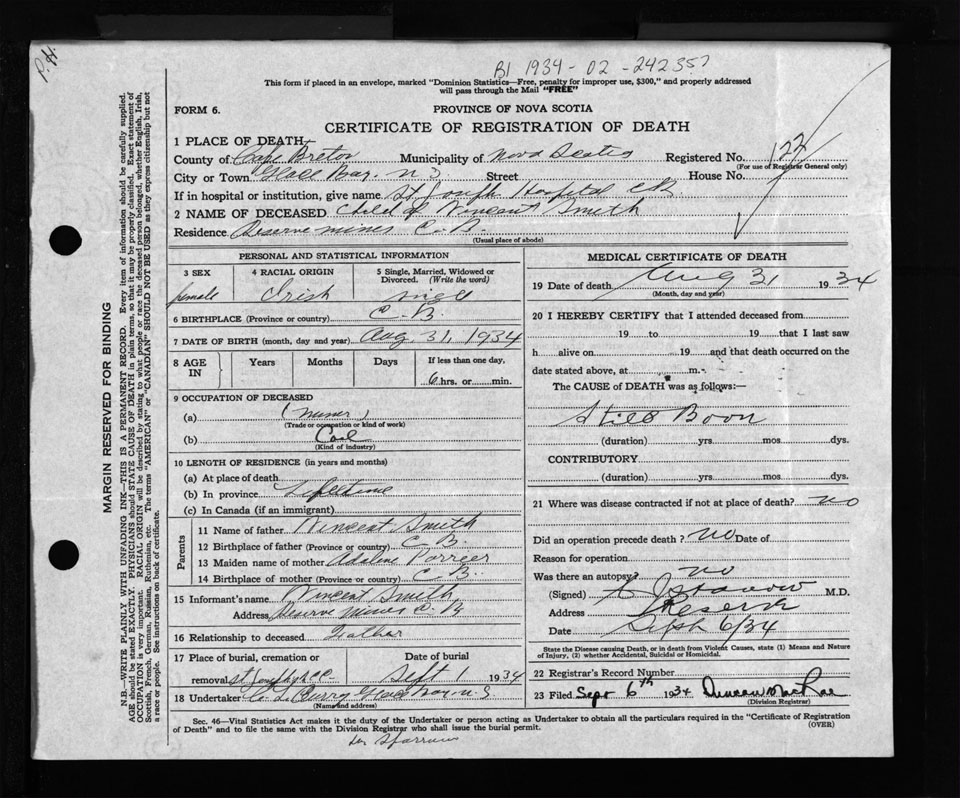 P.H.
B1 1934-02-242357
This form if placed in an envelope, marked "Dominion Statistics—Free, penalty for improper use, $300," and properly addressed
will pass through the Mail "FREE"
FORM 6.
PROVINCE OF NOVA SCOTIA
CERTIFICATE OF REGISTRATION OF DEATH
1 PLACE OF DEATH
County of Cape Breton Municipality of Nova Scotia Registered No. 122
(For use of Registrar General only)
City or Town Glace Bay. N S Street House No.
If in hospital or institution, give name St Joseph Hospital CB
2 NAME OF DECEASED Child of Vincent Smith
Residence Reserve mines C.B.
(Usual place of abode)
PERSONAL AND STATISTICAL INFORMATION
3 SEX female
4 RACIAL ORIGIN Irish
5 Single, Married, Widowed or Divorced. (Write the word)
6 BIRTHPLACE (Province or country) C.B.
7 DATE OF BIRTH (month, day and year) Aug 31, 1934
8 AGE IN Years Months Days If less than one day,
6 hrs. or min.
9 OCCUPATION OF DECEASED
(a) (miner)
(Trade or occupation or kind of work)
(b) Coal
(Kind of industry)
10 LENGTH OF RESIDENCE (in years and months)
(a) At place of death
(b) In province Lifetime
(c) In Canada (if an immigrant)
Parents
11 Name of father Vincent Smith
12 Birthplace of father (Province or country) C B.
13 Maiden name of mother
14 Birthplace of mother (Province or country) C B.
15 Informant's name Vincent Smith
Address Reserve Mines C. B
16 Relationship to deceased Father
17 Place of burial, cremation or removal St Josephs
Date of burial Sept 1 1934
18 Undertaker Curry Glace Bay N.S
(Name and address)
MEDICAL CERTIFICATE OF DEATH
19 Date of death Aug 31 1934
(Month, day and year)
20 I HEREBY CERTIFY that I attended deceased from
19 to 19 that I last saw
h alive on 19 and that death occurred on the
date stated above, at m.
The CAUSE of DEATH was as follows:—
Still Born
(duration) yrs. mos. dys.
CONTRIBUTORY
(duration) yrs. mos. dys.
21 Where was disease contracted if not at place of death? no
Did an operation precede death? no Date of
Reason for operation
Was there an autopsy? no
(Signed) M.D.
Address Reserve
Date Sept 6/34
State the Disease causing Death, or in death from Violent Causes, state (1) Means and Nature of Injury, (2) whether Accidental, Suicidal or Homicidal.
22 Registrar's Record Number
23 Filed Sept 6th 1934 Duncan MacRae
(Division Registrar)
Sec. 46—Vital Statistics Act makes it the duty of the Undertaker or person acting as Undertaker to obtain all the particulars required in the "Certificate of Registration
of Death" and to file the same with the Division Registrar who shall issue the burial permit.
(OVER)
MARGIN RESERVED FOR BINDING
N.B.—WRITE PLAINLY WITH UNFADING INK—THIS IS A PERMANENT RECORD. Every item of information should be carefully supplied.
AGE should be stated EXACTLY. PHYSICIANS should STATE CAUSE OF DEATH in plain terms, so that it may be properly classified. Exact statement of
OCCUPATION is very important. RACIAL ORIGIN will be described by stating to what people or race the deceased person belonged, whether English, Irish,
Scottish, French, German, Russian, Ruthenian, etc. The terms "AMERICAN" or "CANADIAN" SHOULD NOT BE USED as they express citizenship but not
a race or people. See instructions on back of certificate.